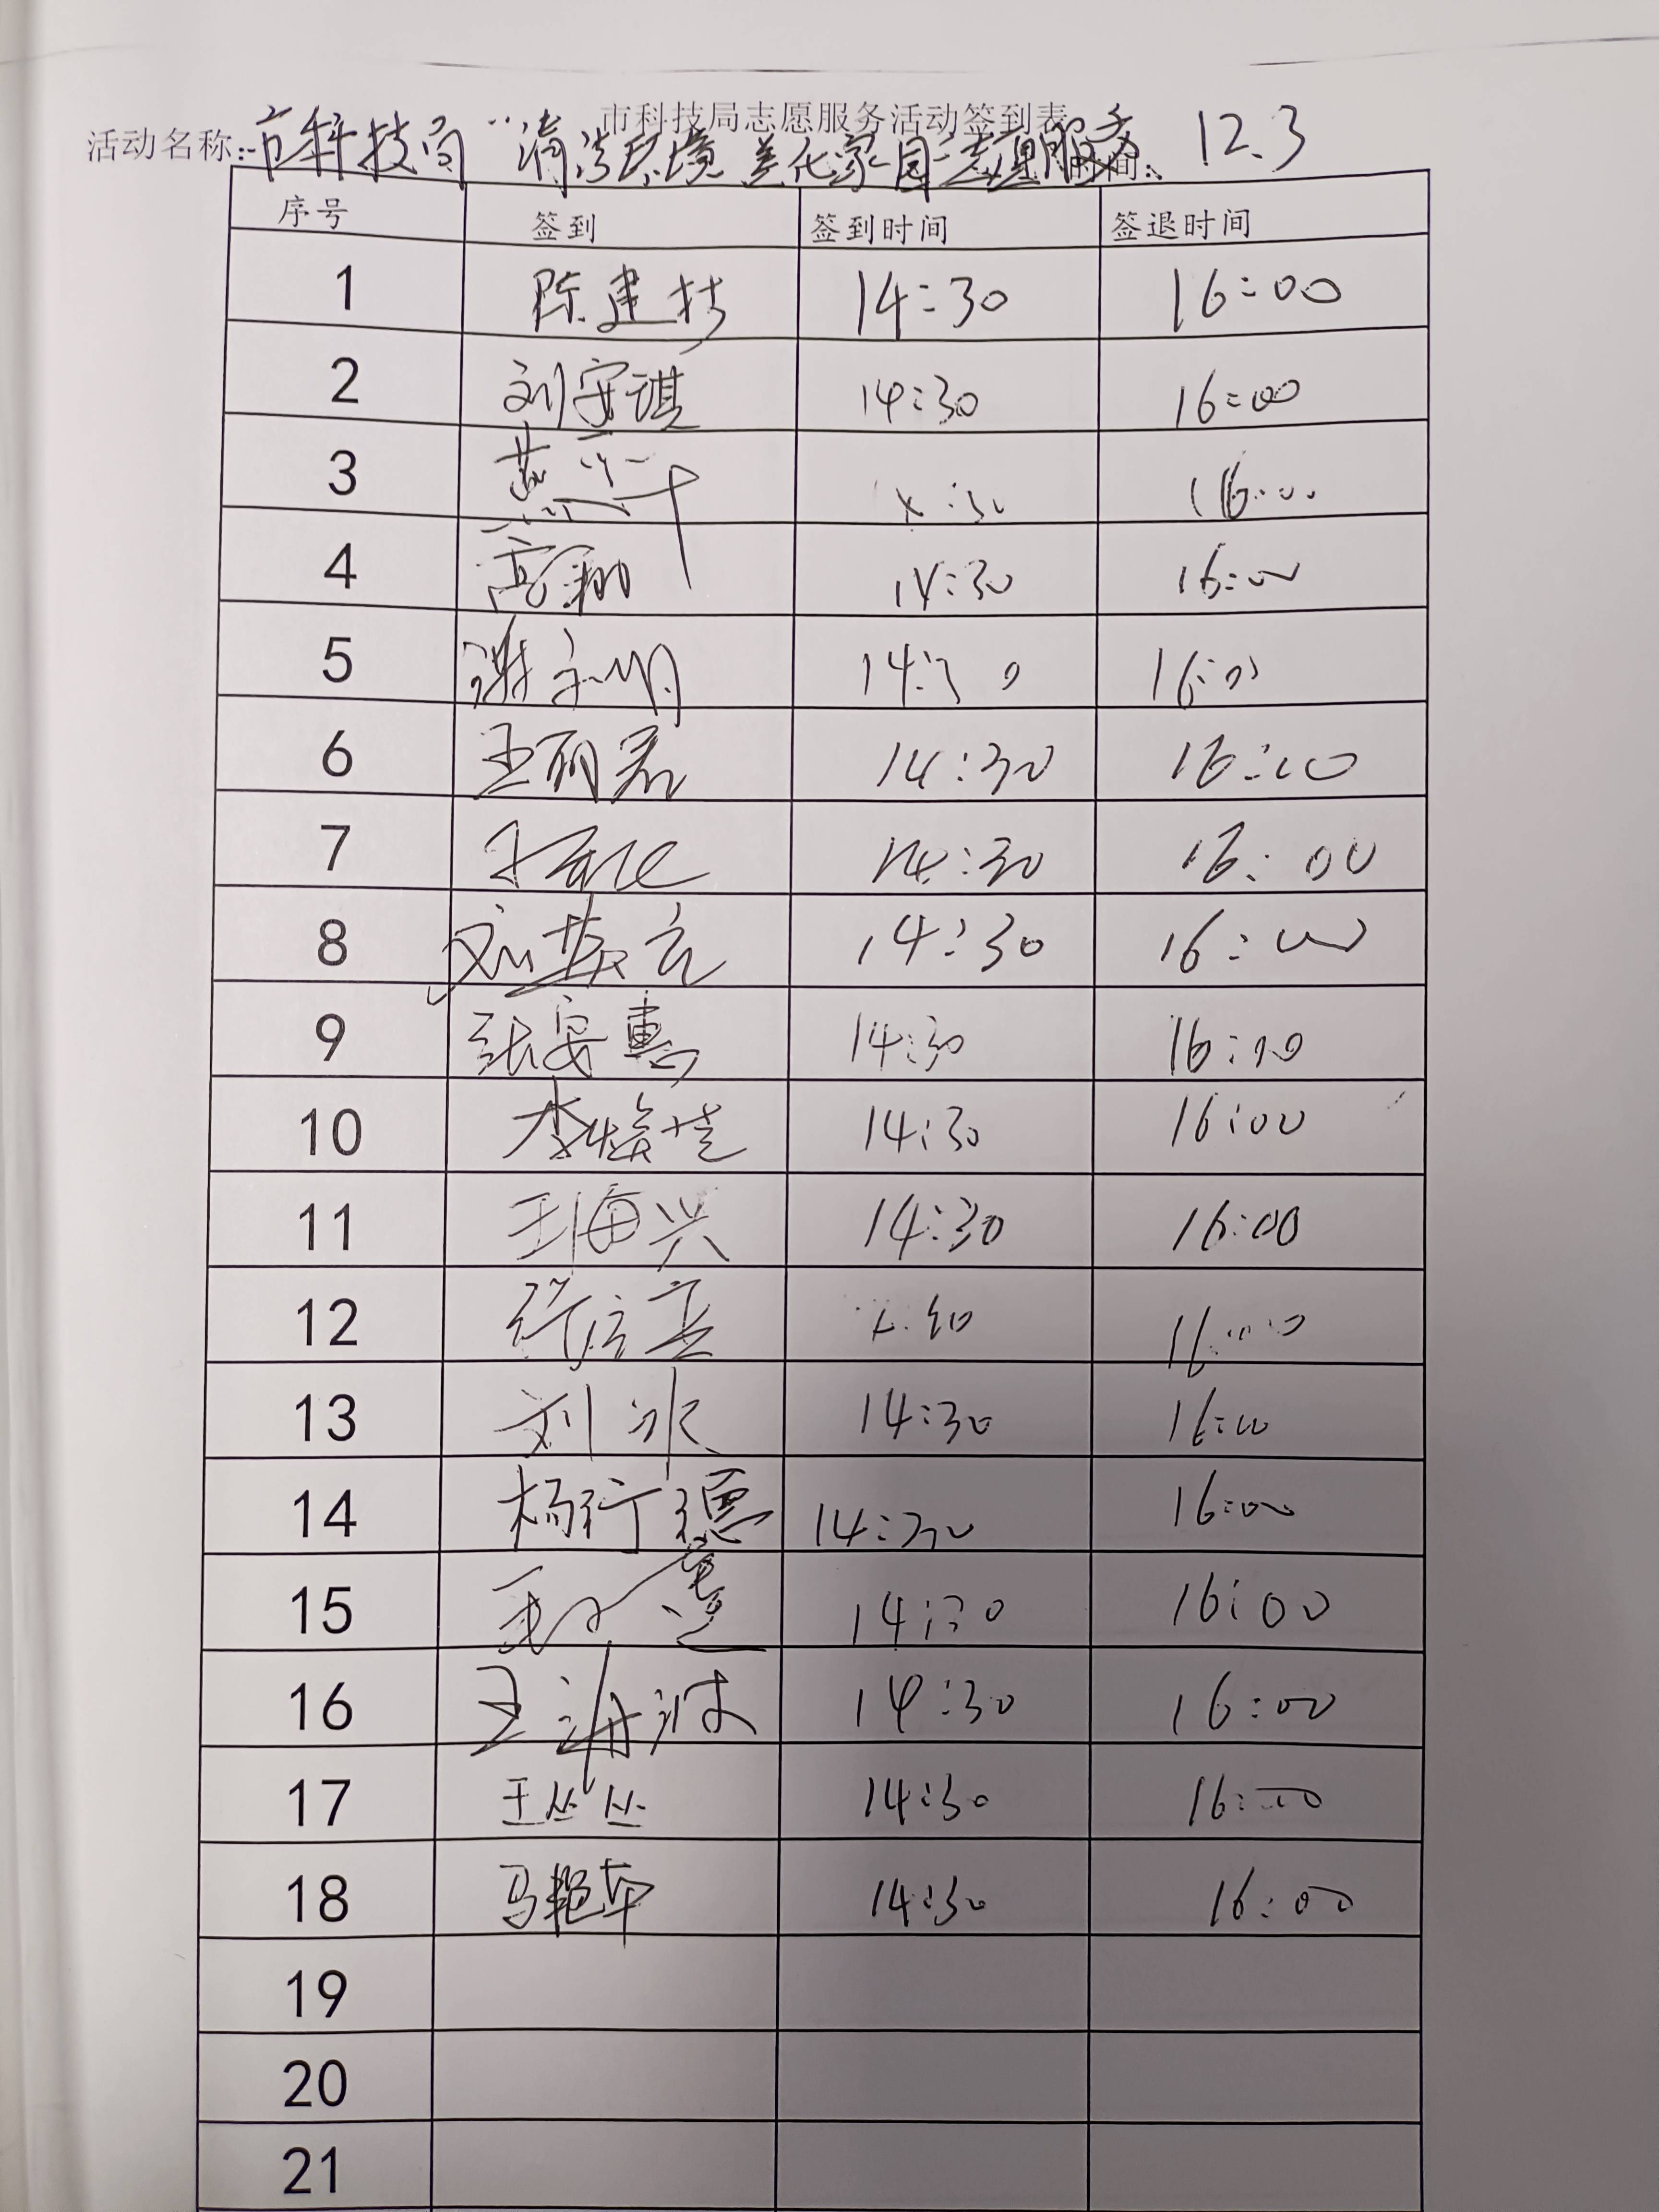 市科技局志愿服务活动签到表
活动名称: 市科技局“清洁环境 美化家园志愿服务 时间: 12.3
序号 签到 签到时间 签退时间
1 陈建 14:30 16:00
2 刘安琪 14:30 16:00
3 16:00
4 高翔 14:30 16:00
5 谢明 14:30 16:00
6 王丽君 14:30 16:00
7 14:30 16:00
8 刘英 14:30 16:00
9 张安惠 14:30 16:00
10 李 14:30 16:00
11 王海兴 14:30 16:00
12 16:00
13 刘冰 14:30 16:00
14 杨行德 14:30 16:00
15 14:30 16:00
16 王海波 14:30 16:00
17 王丛丛 14:30 16:00
18 马艳华 14:30 16:00
19
20
21